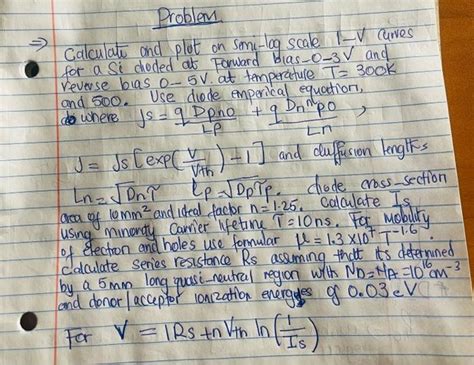 Problem
⇒ Calculate and plot on semi-log scale I-V curves
for a Si dioded at Forward bias-0-3V and
reverse bias 0-5V at temperature T= 300k
and 500. Use diode emperical equation,
where Js = q Dp no / Lp + q Dn n po / Ln ,
J = Js [exp(V/Vth) - 1] and diffusion lengths
Ln = √Dnτ Lp = √Dpτp. diode cross-section
area of 10mm² and ideal factor n=1.25. Calculate Is
using minority carrier lifetime τ=10ns. For mobility
of electron and holes use formular μ = 1.3 x10⁷ T^-1.6.
Calculate series resistance Rs assuming that its determined
by a 5mm long quasi-neutral region with ND=NA=10¹⁶cm⁻³
and donor/acceptor ionization energies of 0.03eV
For V = IRs + nVth ln(I/Is)